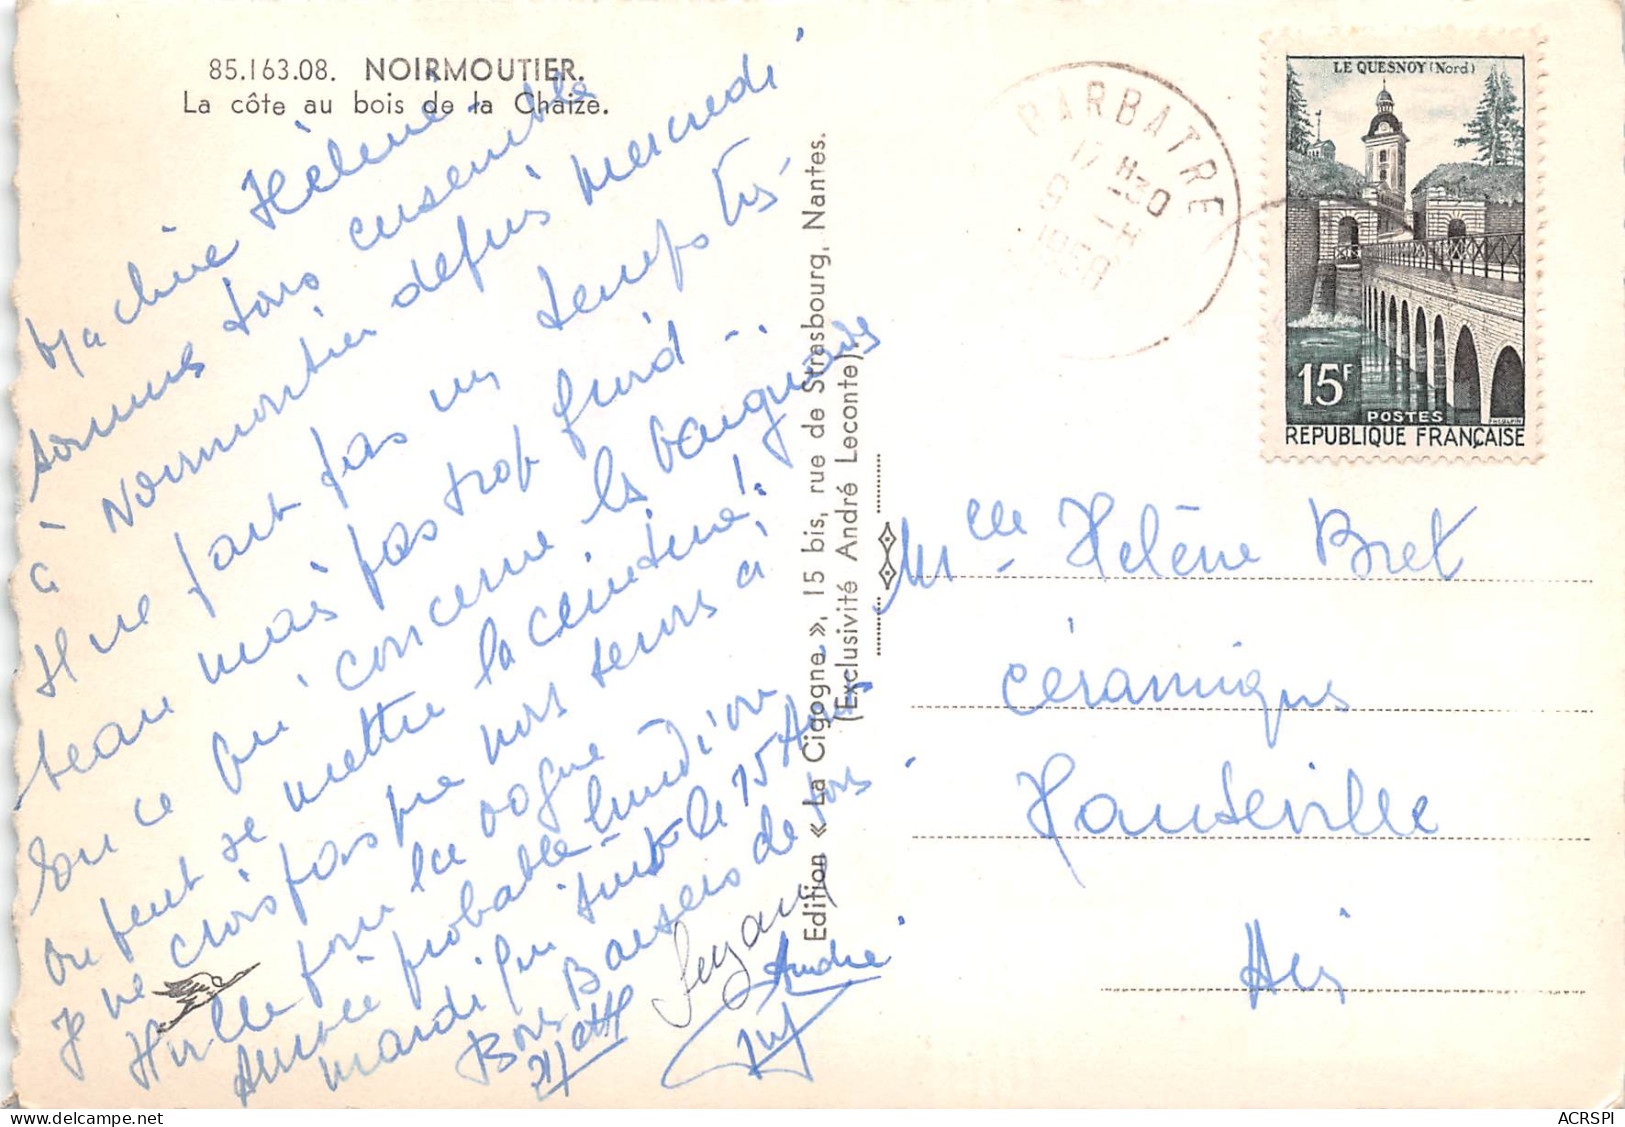 85.163.08. NOIRMOUTIER.
La côte au bois de la Chaize.
Ma chère Hélène
sommes tous ensemble
à Noirmoutier depuis mercredi
Il ne fait pas un temps très
beau mais pas trop froid
En ce qui concerne les baignades
on peut se mettre la ceinture!
Je ne crois pas que nous serons à
Hville pour la vogue
Arrivée probable lundi ou
mardi
15 Août
Bons Baisers de tous
Suzanne
André
Edition « La Cigogne », 15 bis, rue de Strasbourg, Nantes.
(Exclusivité André Leconte)
BARBATRE
17 H30
9 -8
1958
LE QUESNOY (Nord)
15F
POSTES
REPUBLIQUE FRANÇAISE
Melle Hélène Bret
céramiques
Hauteville
Ain
ACRSPI